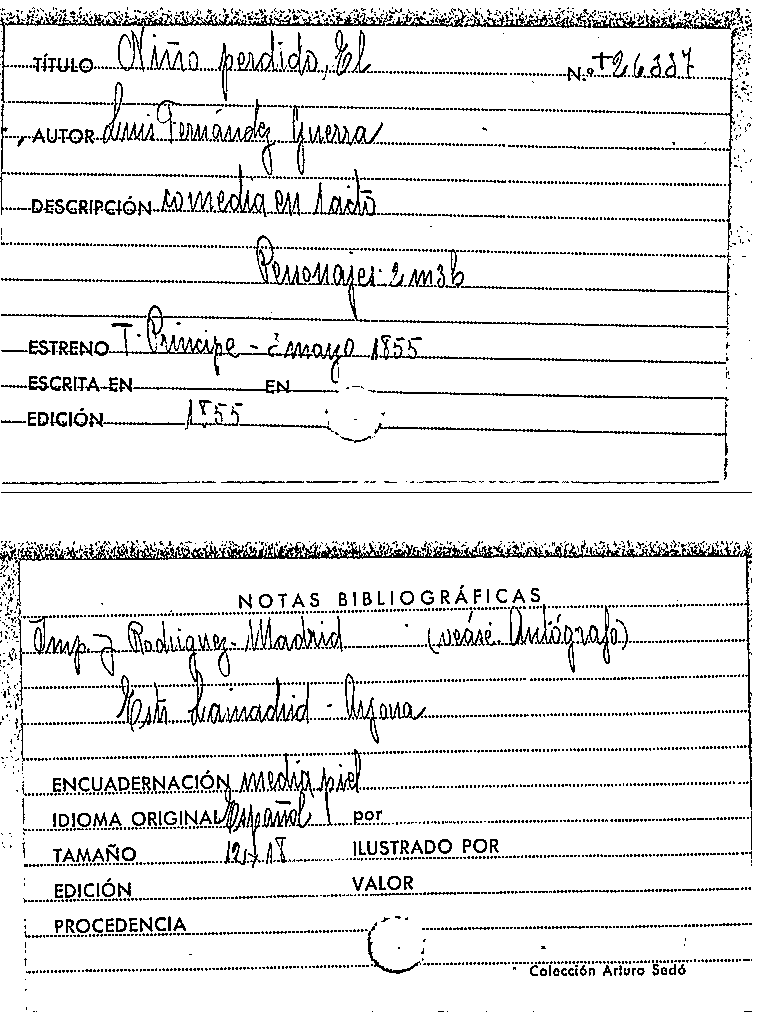 TÍTULO Niño perdido, El N.º +26337
AUTOR Luis Fernández Guerra
DESCRIPCIÓN comedia en 1 acto
Personajes 2 m 3 h
ESTRENO T. Principe - 2 mayo 1855
ESCRITA EN EN
EDICIÓN 1855
NOTAS BIBLIOGRÁFICAS
Imp J Rodriguez. Madrid (veáse Autógrafo)
Estr Lamadrid - Arjona
ENCUADERNACIÓN media piel
IDIOMA ORIGINAL Español por
TAMAÑO 12 x 18 ILUSTRADO POR
EDICIÓN VALOR
PROCEDENCIA
Colección Arturo Sedó